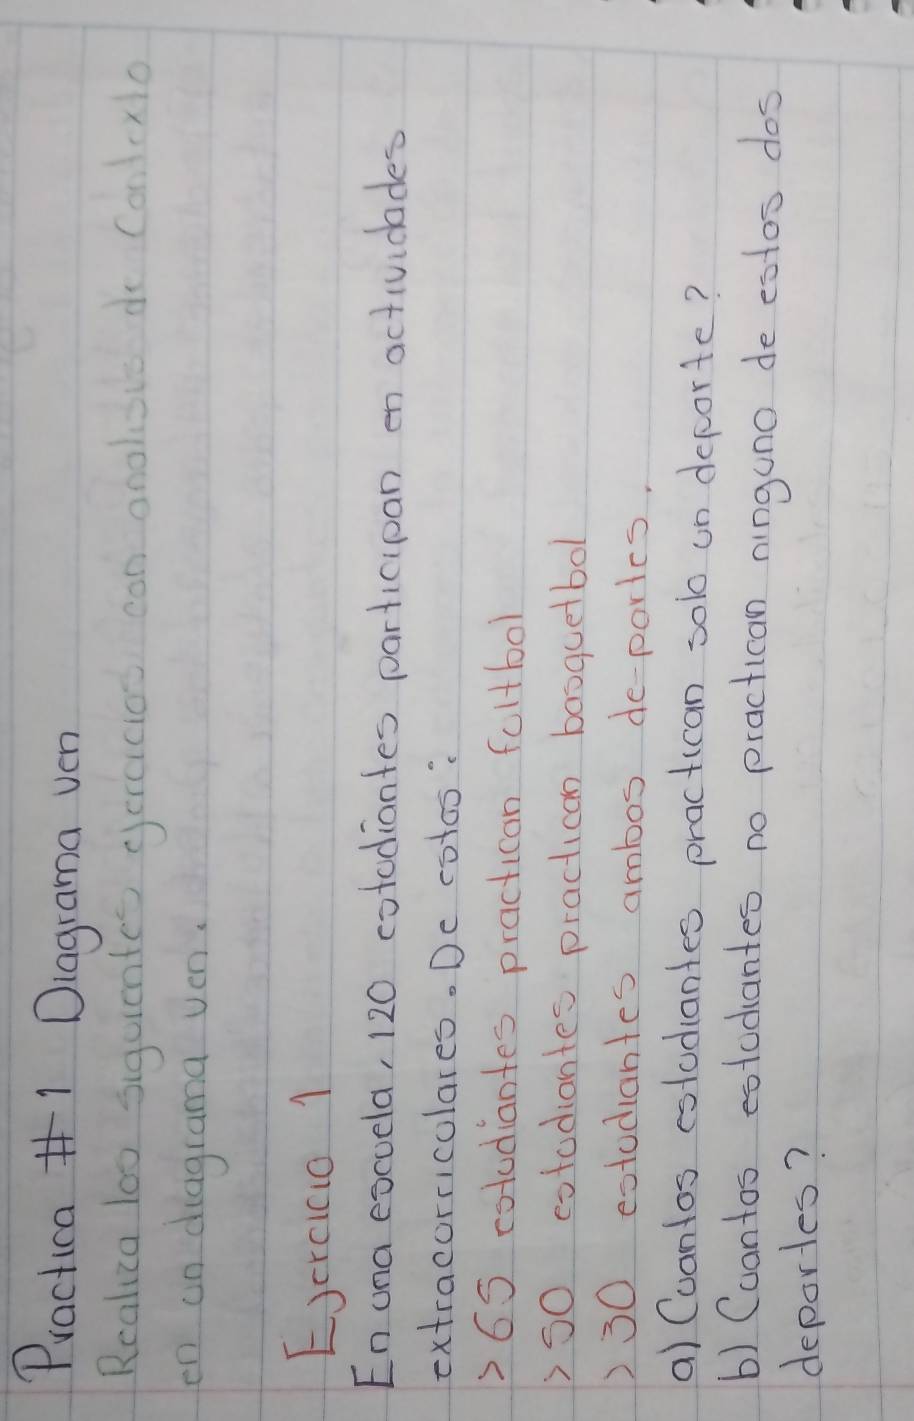 Practica #1 Diagrama ven
Realiza los siguientes ejercicios con analisis de Contexto
en un diagrama ven.
Ejercicio 1
En una escuela, 120 estudiantes participan en actividades
extracurriculares. De estos:
> 65 estudiantes practican fultbol
> 50 estudiantes practican basquetbol
> 30 estudiantes ambos de-portes.
a) Cuantos estudiantes practican solo un deporte?
b) Cuantos estudiantes no practican ninguno de estos dos
deportes?